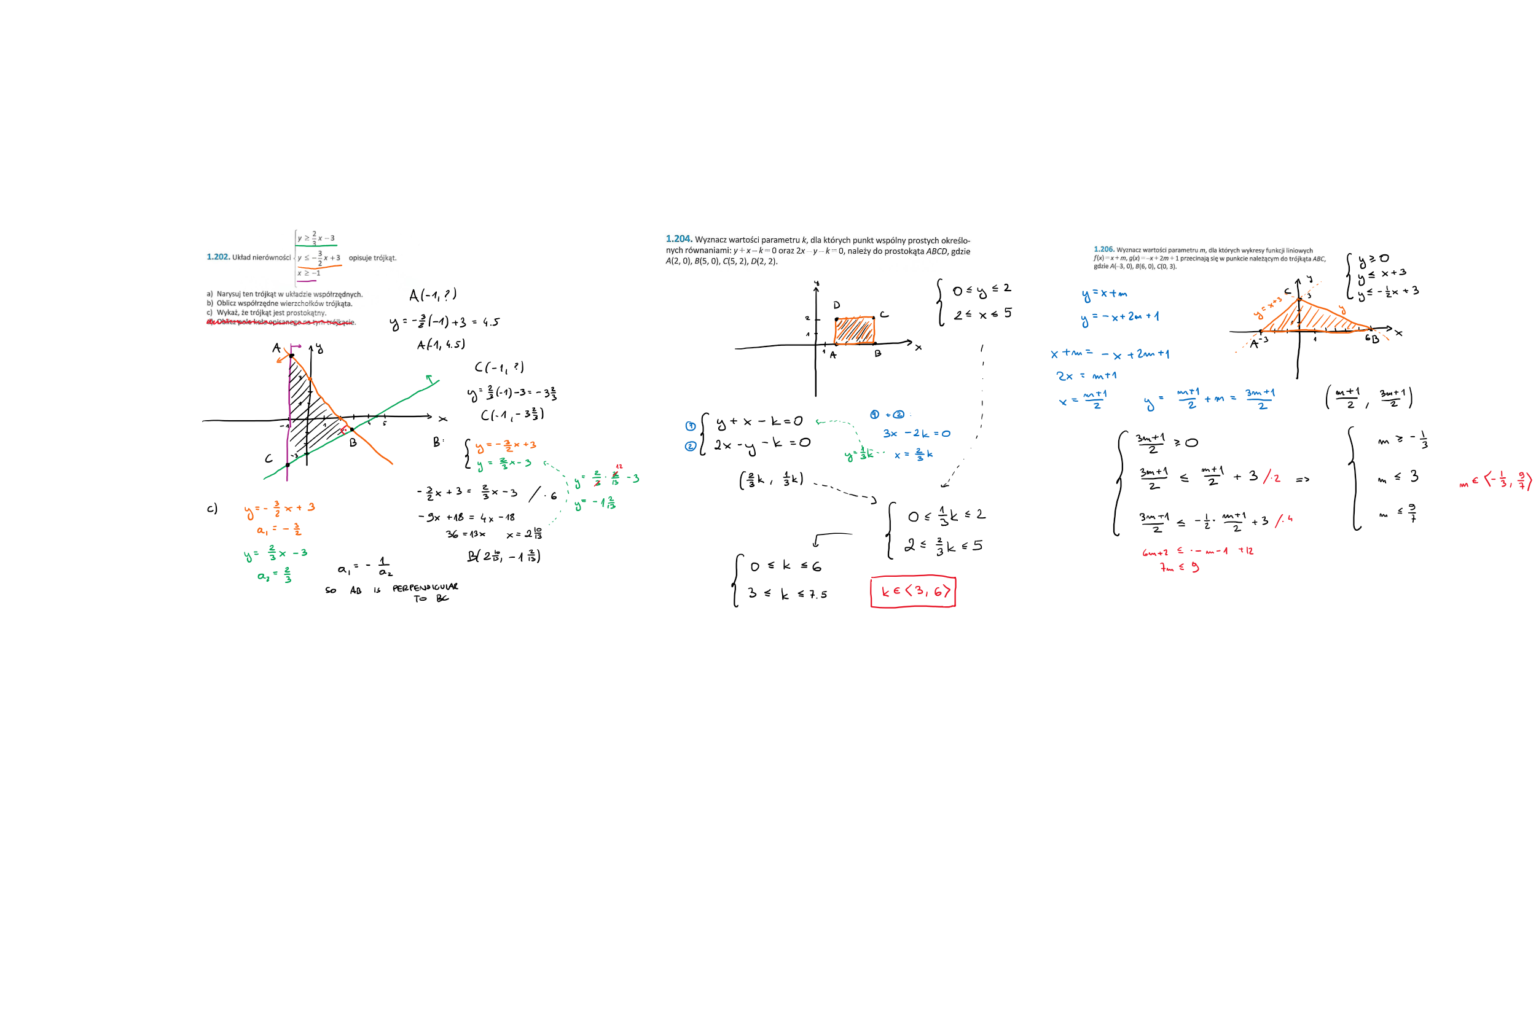 1.202. Układ nierówności { y ≥ 2/3 x − 3
y ≤ −3/2 x + 3 opisuje trójkąt.
x ≥ −1
a) Narysuj ten trójkąt w układzie współrzędnych.
b) Oblicz współrzędne wierzchołków trójkąta.
c) Wykaż, że trójkąt jest prostokątny.
A(-1, ?)
y = -3/2(-1) + 3 = 4.5
A(-1, 4.5)
C(-1, ?)
y = 2/3(-1) - 3 = -3 2/3
C(-1, -3 2/3)
A
y
x
B
C
-1
1
5
-3
B:
{ y = -3/2 x + 3
y = 2/3 x - 3
-3/2 x + 3 = 2/3 x - 3 / · 6
-9x + 18 = 4x - 18
36 = 13x x = 2 10/13
B(2 10/13, -1 2/13)
y = 2/3 · 36/13 - 3
12
y = -1 2/13
c)
y = -3/2 x + 3
a₁ = -3/2
y = 2/3 x - 3
a₂ = 2/3
a₁ = - 1/a₂
SO AB IS PERPENDICULAR
TO BC
1.204. Wyznacz wartości parametru k, dla których punkt wspólny prostych określo-
nych równaniami: y + x − k = 0 oraz 2x − y − k = 0, należy do prostokąta ABCD, gdzie
A(2, 0), B(5, 0), C(5, 2), D(2, 2).
y
D
C
2
1
1
A
B
x
{ 0 ≤ y ≤ 2
2 ≤ x ≤ 5
① { y + x - k = 0
② 2x - y - k = 0
① = ②
3x - 2k = 0
x = 2/3 k
y = 1/3 k
(2/3 k, 1/3 k)
{ 0 ≤ 1/3 k ≤ 2
2 ≤ 2/3 k ≤ 5
{ 0 ≤ k ≤ 6
3 ≤ k ≤ 7.5
k ∈ ⟨3, 6⟩
1.206. Wyznacz wartości parametru m, dla których wykresy funkcji liniowych
f(x) = x + m, g(x) = −x + 2m + 1 przecinają się w punkcie należącym do trójkąta ABC,
gdzie A(−3, 0), B(6, 0), C(0, 3).
{ y ≥ 0
y ≤ x + 3
y ≤ -1/2 x + 3
y = x + m
y = -x + 2m + 1
y = x+3
y
C
3
y
A
-3
1
6
B
x
x + m = -x + 2m + 1
2x = m + 1
x = m+1/2
y = m+1/2 + m = 3m+1/2
(m+1/2, 3m+1/2)
{ 3m+1/2 ≥ 0
3m+1/2 ≤ m+1/2 + 3 / · 2 =>
3m+1/2 ≤ -1/2 · m+1/2 + 3 / · 4
6m+2 ≤ -m-1 +12
7m ≤ 9
{ m ≥ -1/3
m ≤ 3
m ≤ 9/7
m ∈ ⟨-1/3, 9/7⟩